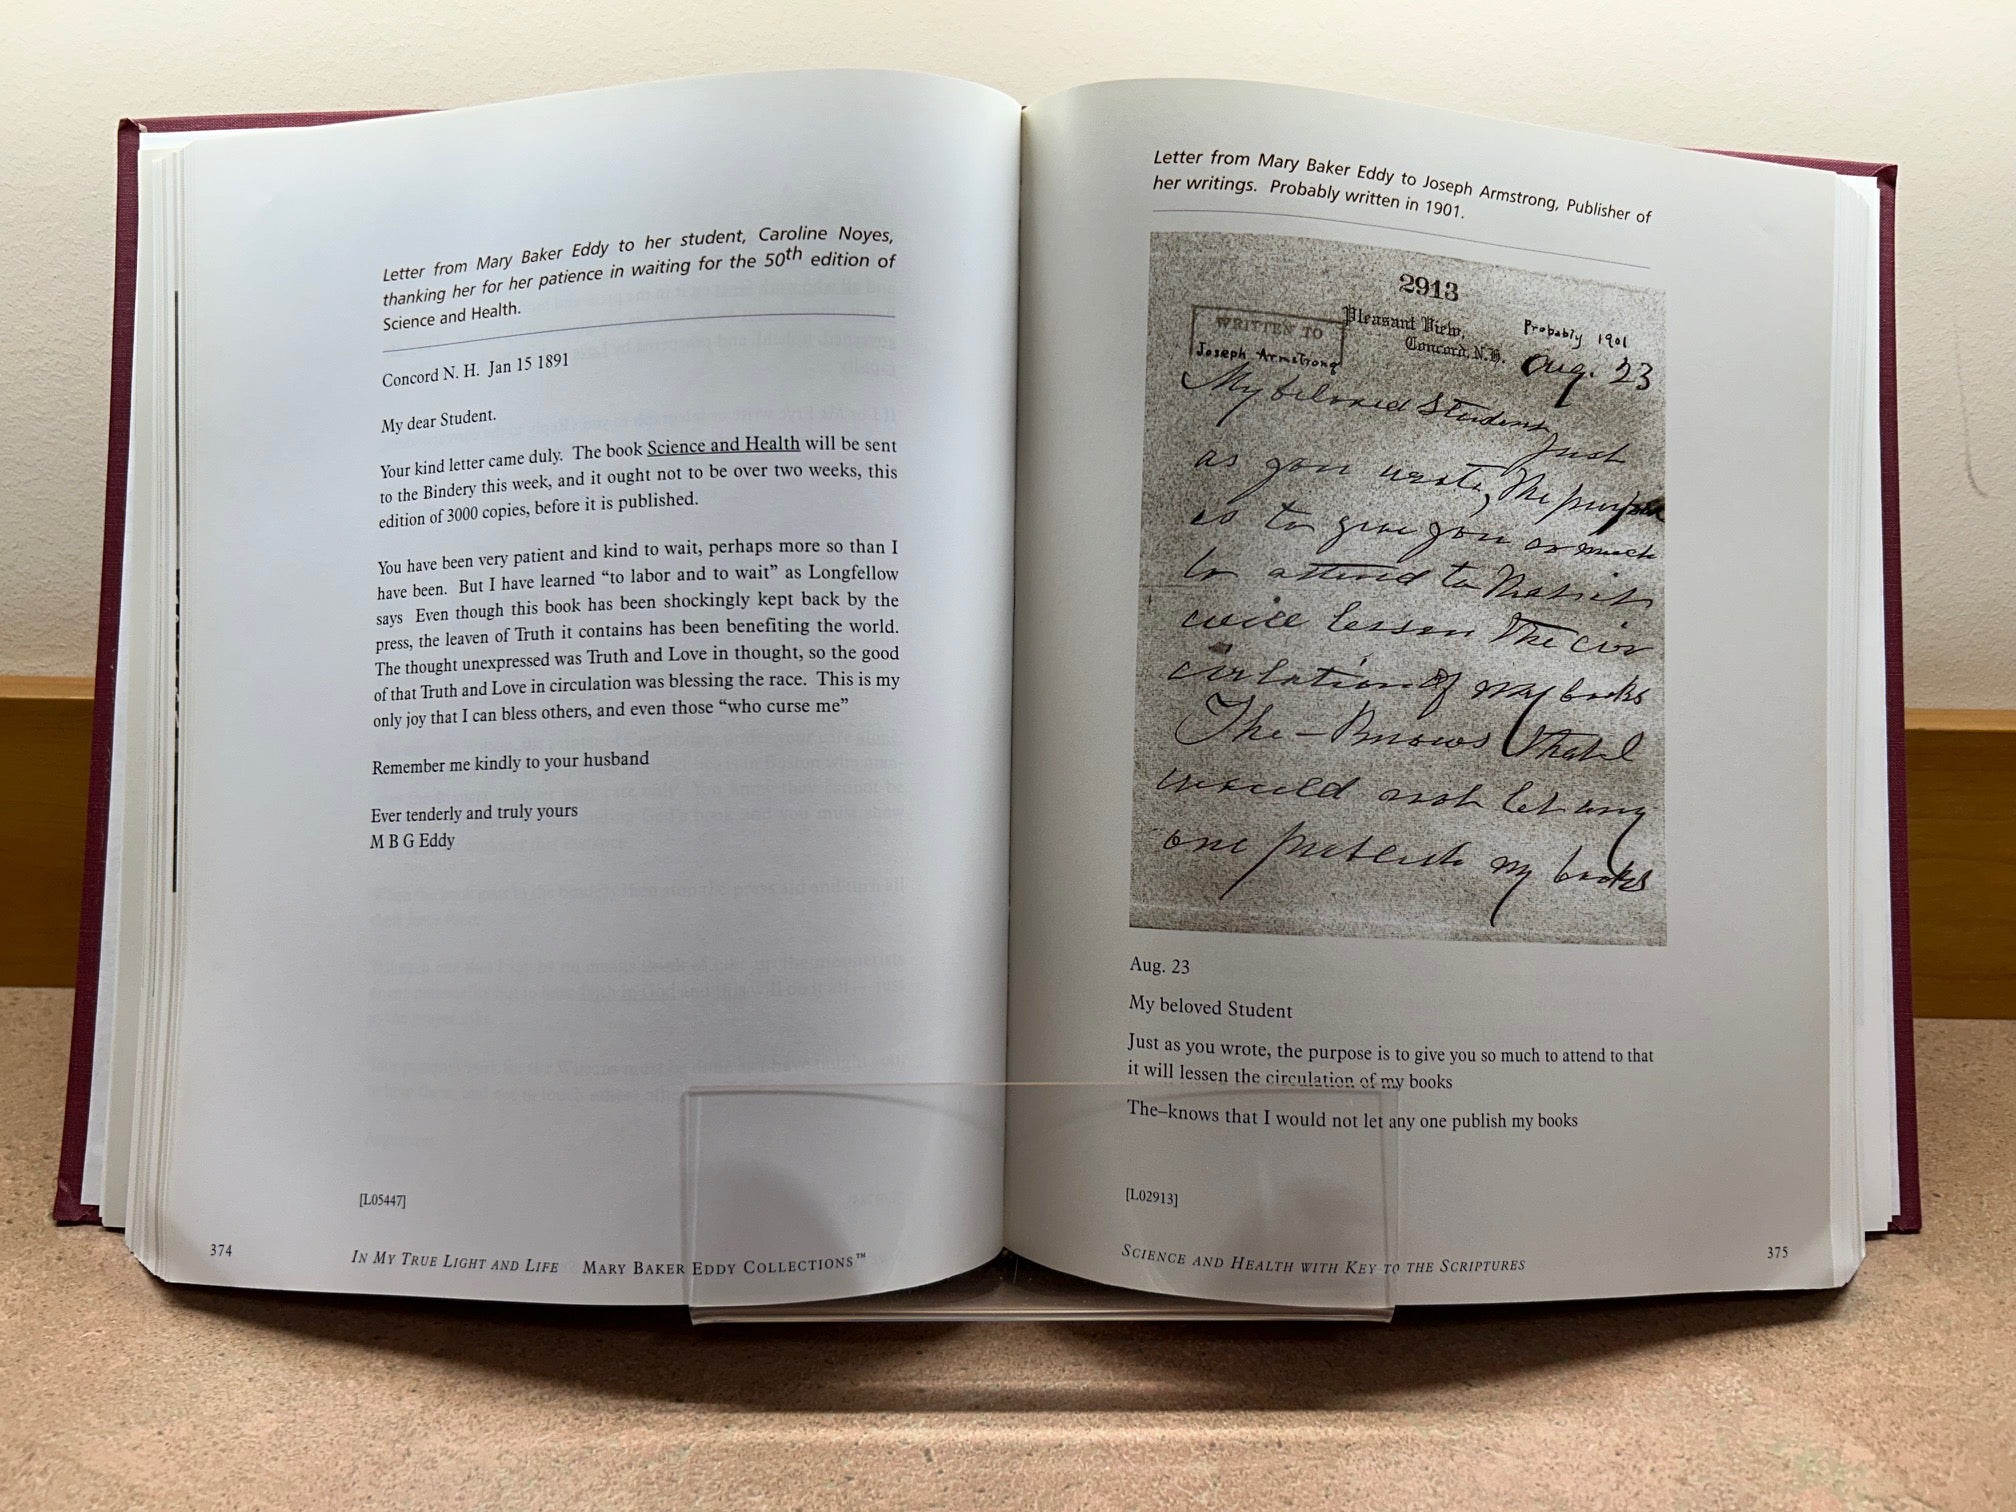 Letter from Mary Baker Eddy to her student, Caroline Noyes,
thanking her for her patience in waiting for the 50th edition of
Science and Health.
Concord N. H. Jan 15 1891
My dear Student.
Your kind letter came duly. The book Science and Health will be sent
to the Bindery this week, and it ought not to be over two weeks, this
edition of 3000 copies, before it is published.
You have been very patient and kind to wait, perhaps more so than I
have been. But I have learned “to labor and to wait” as Longfellow
says Even though this book has been shockingly kept back by the
press, the leaven of Truth it contains has been benefiting the world.
The thought unexpressed was Truth and Love in thought, so the good
of that Truth and Love in circulation was blessing the race. This is my
only joy that I can bless others, and even those “who curse me”
Remember me kindly to your husband
Ever tenderly and truly yours
M B G Eddy
[L05447]
374
IN MY TRUE LIGHT AND LIFE MARY BAKER EDDY COLLECTIONS™
Letter from Mary Baker Eddy to Joseph Armstrong, Publisher of
her writings. Probably written in 1901.
2913
WRITTEN TO
Joseph Armstrong
Pleasant View,
Concord, N.H.
Probably 1901
Aug. 23
My beloved Student
Just
as you wrote, the purpose
is to give you so much
to attend to that it
will lessen the cir
culation of my books
The – knows that I
would not let any
one publish my books
Aug. 23
My beloved Student
Just as you wrote, the purpose is to give you so much to attend to that
it will lessen the circulation of my books
The–knows that I would not let any one publish my books
[L02913]
SCIENCE AND HEALTH WITH KEY TO THE SCRIPTURES
375